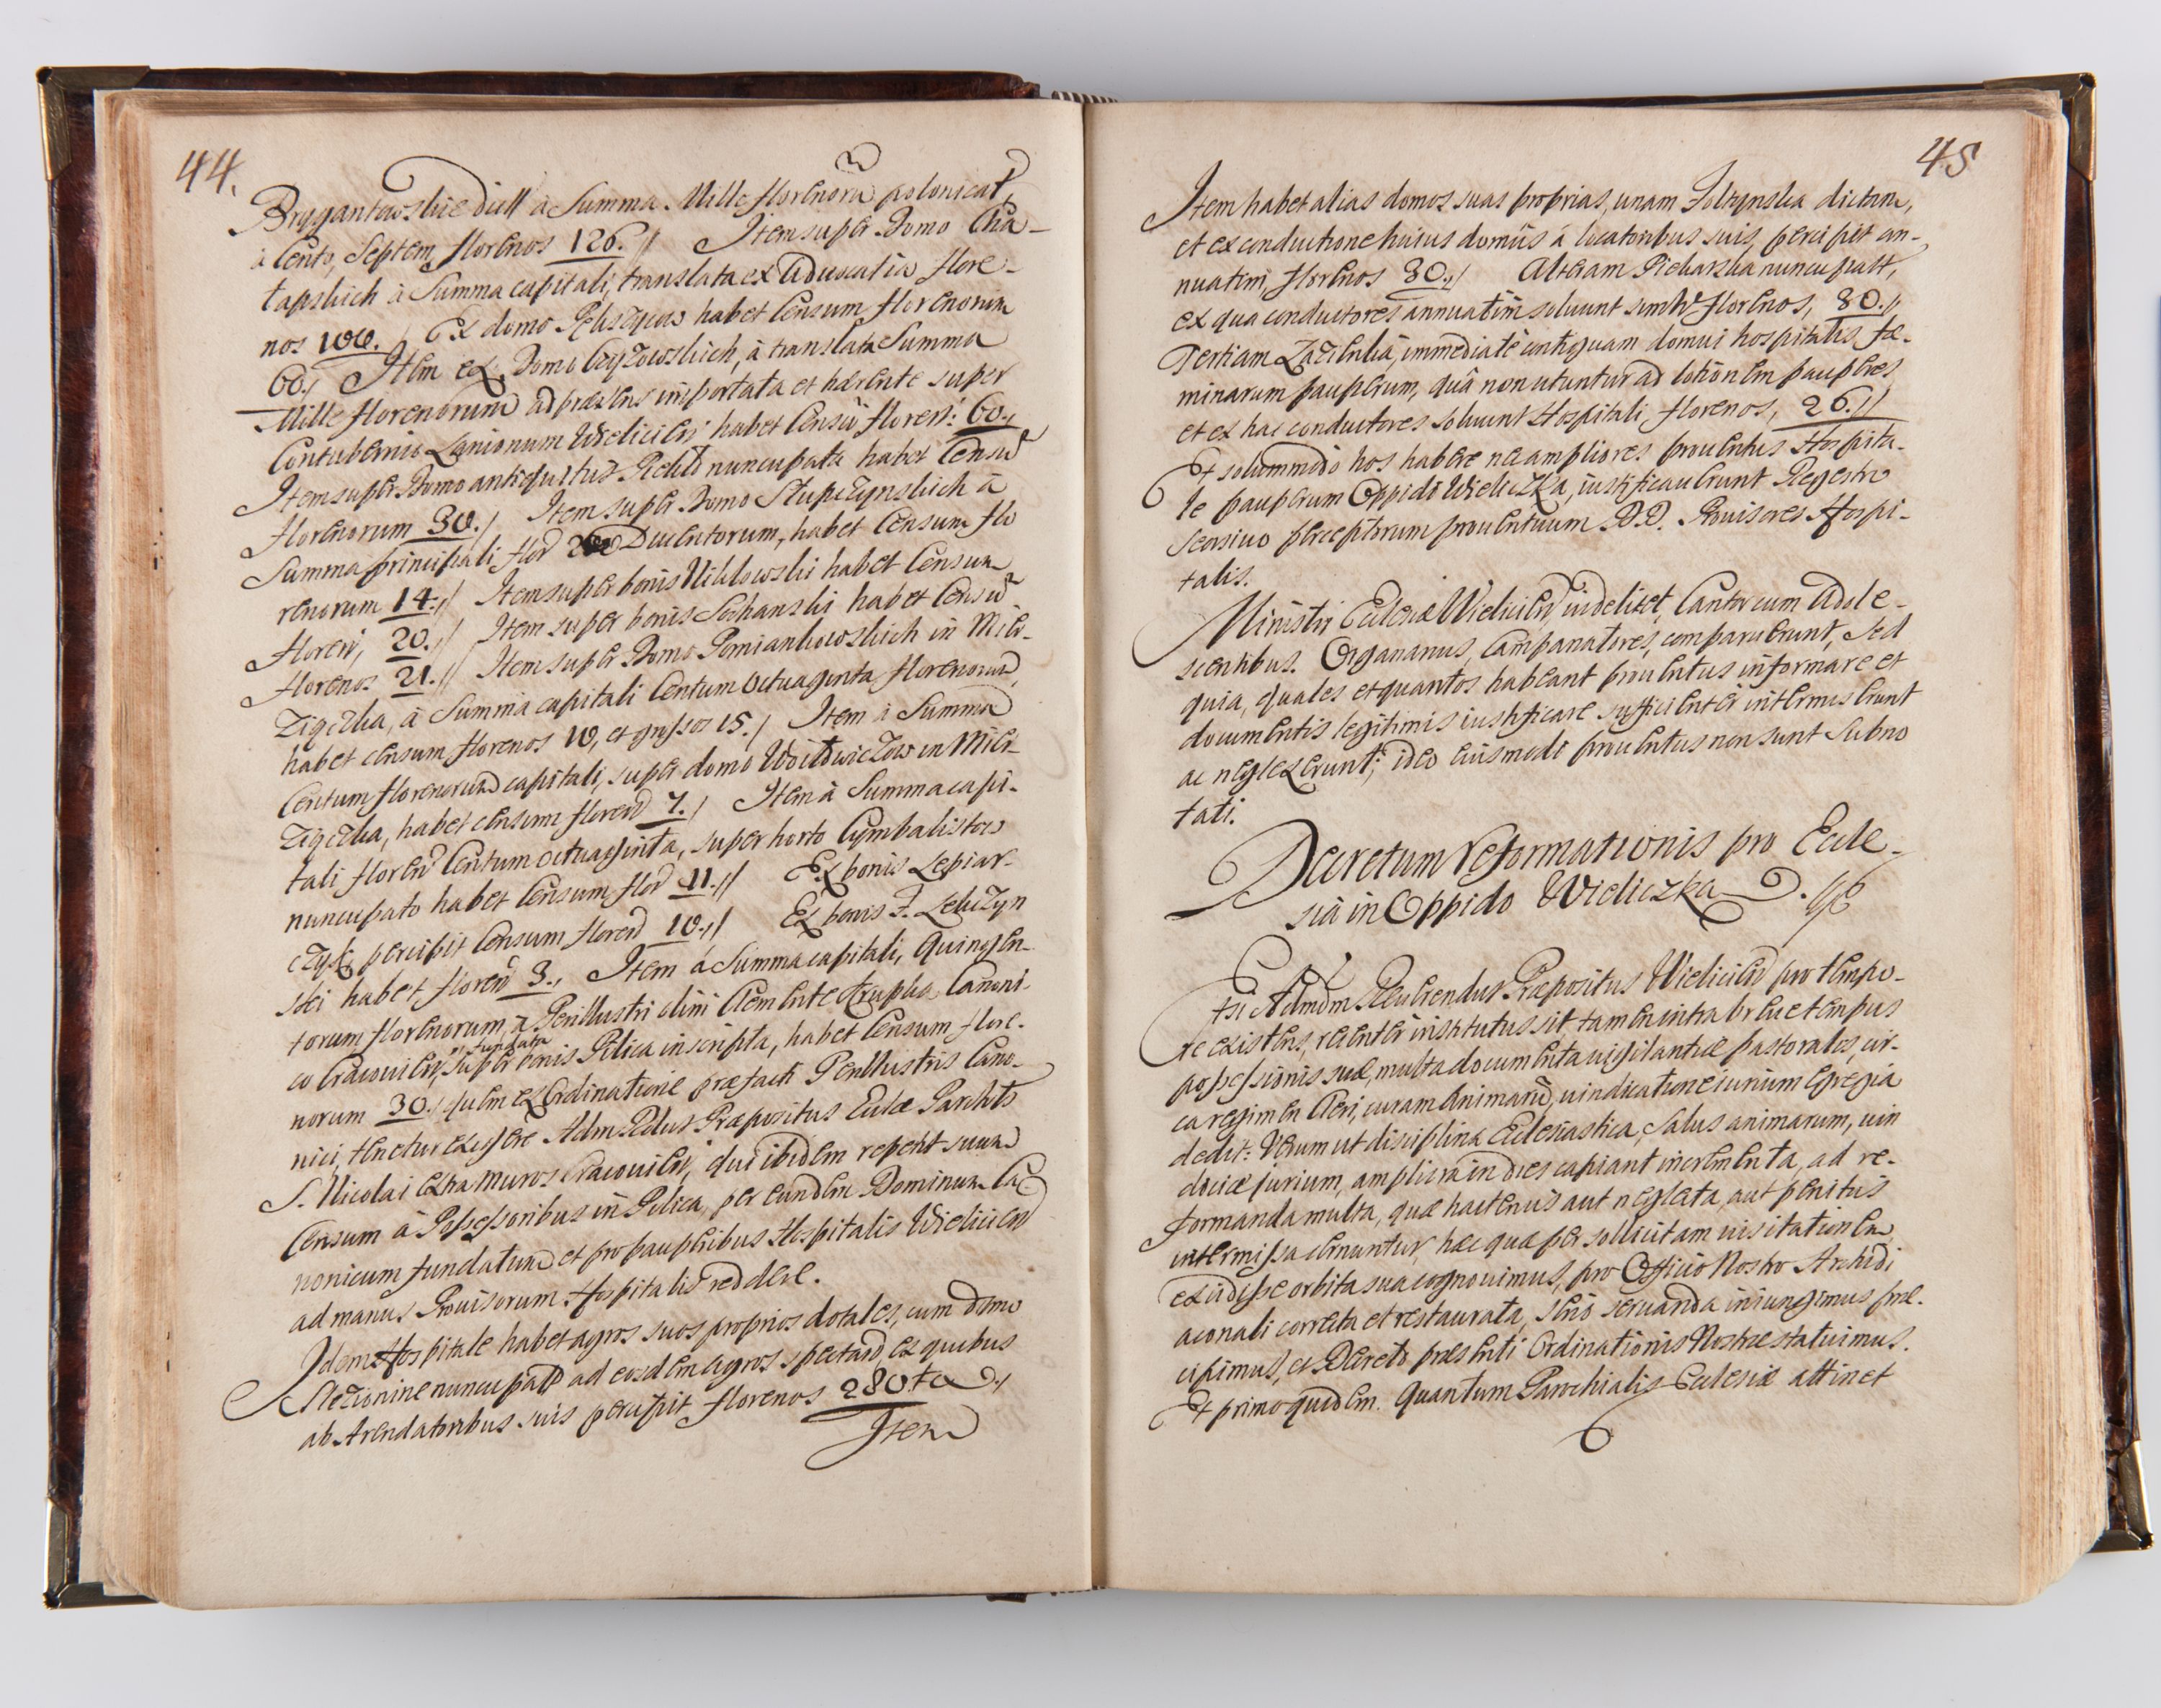 44.
Brygantowskie dict à Summa Mille florenorũ polonical,
à Cento, Septem, florenos 126.// Item super Domo Cha-
tapskich à Summa capitali, translata ex Aduocatia flore-
nos 100./ Ex domo habet Censum florenorum
60./ Item ex Domo Czyżowskich, à translata Summa
Mille florenorum ad præsens importata et hærente super
Contubernio Lanionum Wielicien habet Censũ floren: 60./
Item super Domo antiquitus nuncupata habet Censũ
florenorum 30./ Item super Domo Stupczynskich à
Summa principali flor Ducentorum, habet Censum flo
renorum 14.// Item super bonis Niklowski habet Censum
floren, 20.// Item super bonis Sochanski habet Censũ
florenos 21.// Item super Domo Pomiankowskich in Mier-
ziączka, à Summa capitali Centum octuaginta florenorum,
habet censum florenos 10, et grossos 15./ Item à Summa
Centum florenorum capitali, super domo Woitowiczow in Mier-
ziączka, habet censum floren 7./ Item à Summa capi-
tali floren Centum octuaginta, super horto Cymbalistow
nuncupato habet Censum flor 11.// Ex bonis Lepiar-
czyk percipit Censum floren 10.// Ex bonis F. Lekczyn
ski habet, floren 3., Item à Summa capitali, Quingen-
torum florenorum, à Perillustri olim Clemente Krupka Canoni-
co Cracovien, fundata super bonis Pilica inscripta, habet Censum flore-
norum 30./ quem ex Ordinatione præfacti Perillustris Cano-
nici, tenetur exigere Adm Rdus Præpositus Eccłæ Parchlis
S. Nicolai extra muros Cracouien, qui ibidem repetit suum
Censum à Possessoribus in Pilica, per eundem Dominum Ca
nonicum fundatum et pro pauperibus Hospitalis Wielicien
ad manus Prouisorum Hospitalis reddere.
Idem Hospitale habet agros suos proprios dotales, cum domo
nuncupatt ad eosdem agros spectañ ex quibus
ab Arendatoribus suis percipit florenos 280ta./
Item
45
Item habet alias domos suas proprias, unam Foltynska dictam,
et ex conductione huius domûs à locatoribus suis, percipit an-
nuatim, florenos 30.,/ Alteram Piekarska nuncupatt,
ex qua conductores annuatim soluunt florenos, 80.//
Tertiam Łaziebka, immediatè contiguam domui hospitalis fæ-
minarum pauperum, quâ non utuntur ad lotionem pauperes
et ex hac conductores soluunt Hospitali florenos, 26.//
Et solummodo hos habere nec ampliores prouentus Hospita-
le pauperum Oppidi Wieliczka, iustificauerunt Regestro
Seorsiuo perceptorum prouentuum D.D. Prouisores Hospi-
talis.
Ministri Ecclesiæ Wielicien, videlicet, Cantor cum Adole-
scentibus. Organarius, Campanatores, comparuerunt, sed
quia, quales et quantos habeant prouentus informare et
documentis legitimis iustificare sufficienter intermiserunt
ac neglexerunt; ideo eiusmodi prouentus non sunt Subno
tati.
Decretum reformationis pro Eccle-
sia in Oppido Wieliczka.
Etsi Admdm Reuerendus Præpositus Wielicien pro tempo-
re existens, recenter institutus sit, tamen intra breue tempus
possessionis suæ, multa documenta vigilantiæ pastoralis, cir-
ca regimen Cleri, curam Animarũ, uindicatione iurium egregia
dedit: Verum ut disciplina Ecclesiastica, Salus animarum, uin
diciæ jurium, ampliora in dies capiant incrementa, ad re-
formanda multa, quæ hactenus aut neglecta, aut penitus
intermissa cernuntur, hæc quæ per sollicitam uisitationem
excidisse orbita sua cognouimus, pro Officio Nostro Archidi
aconali correcta et restaurata, seriò seruanda iniungimus præ-
cipimus, et Decreto præsenti Ordinationis Nostræ statuimus.
Et primo quidem. Quantum Parochialis Ecclesiæ attinet